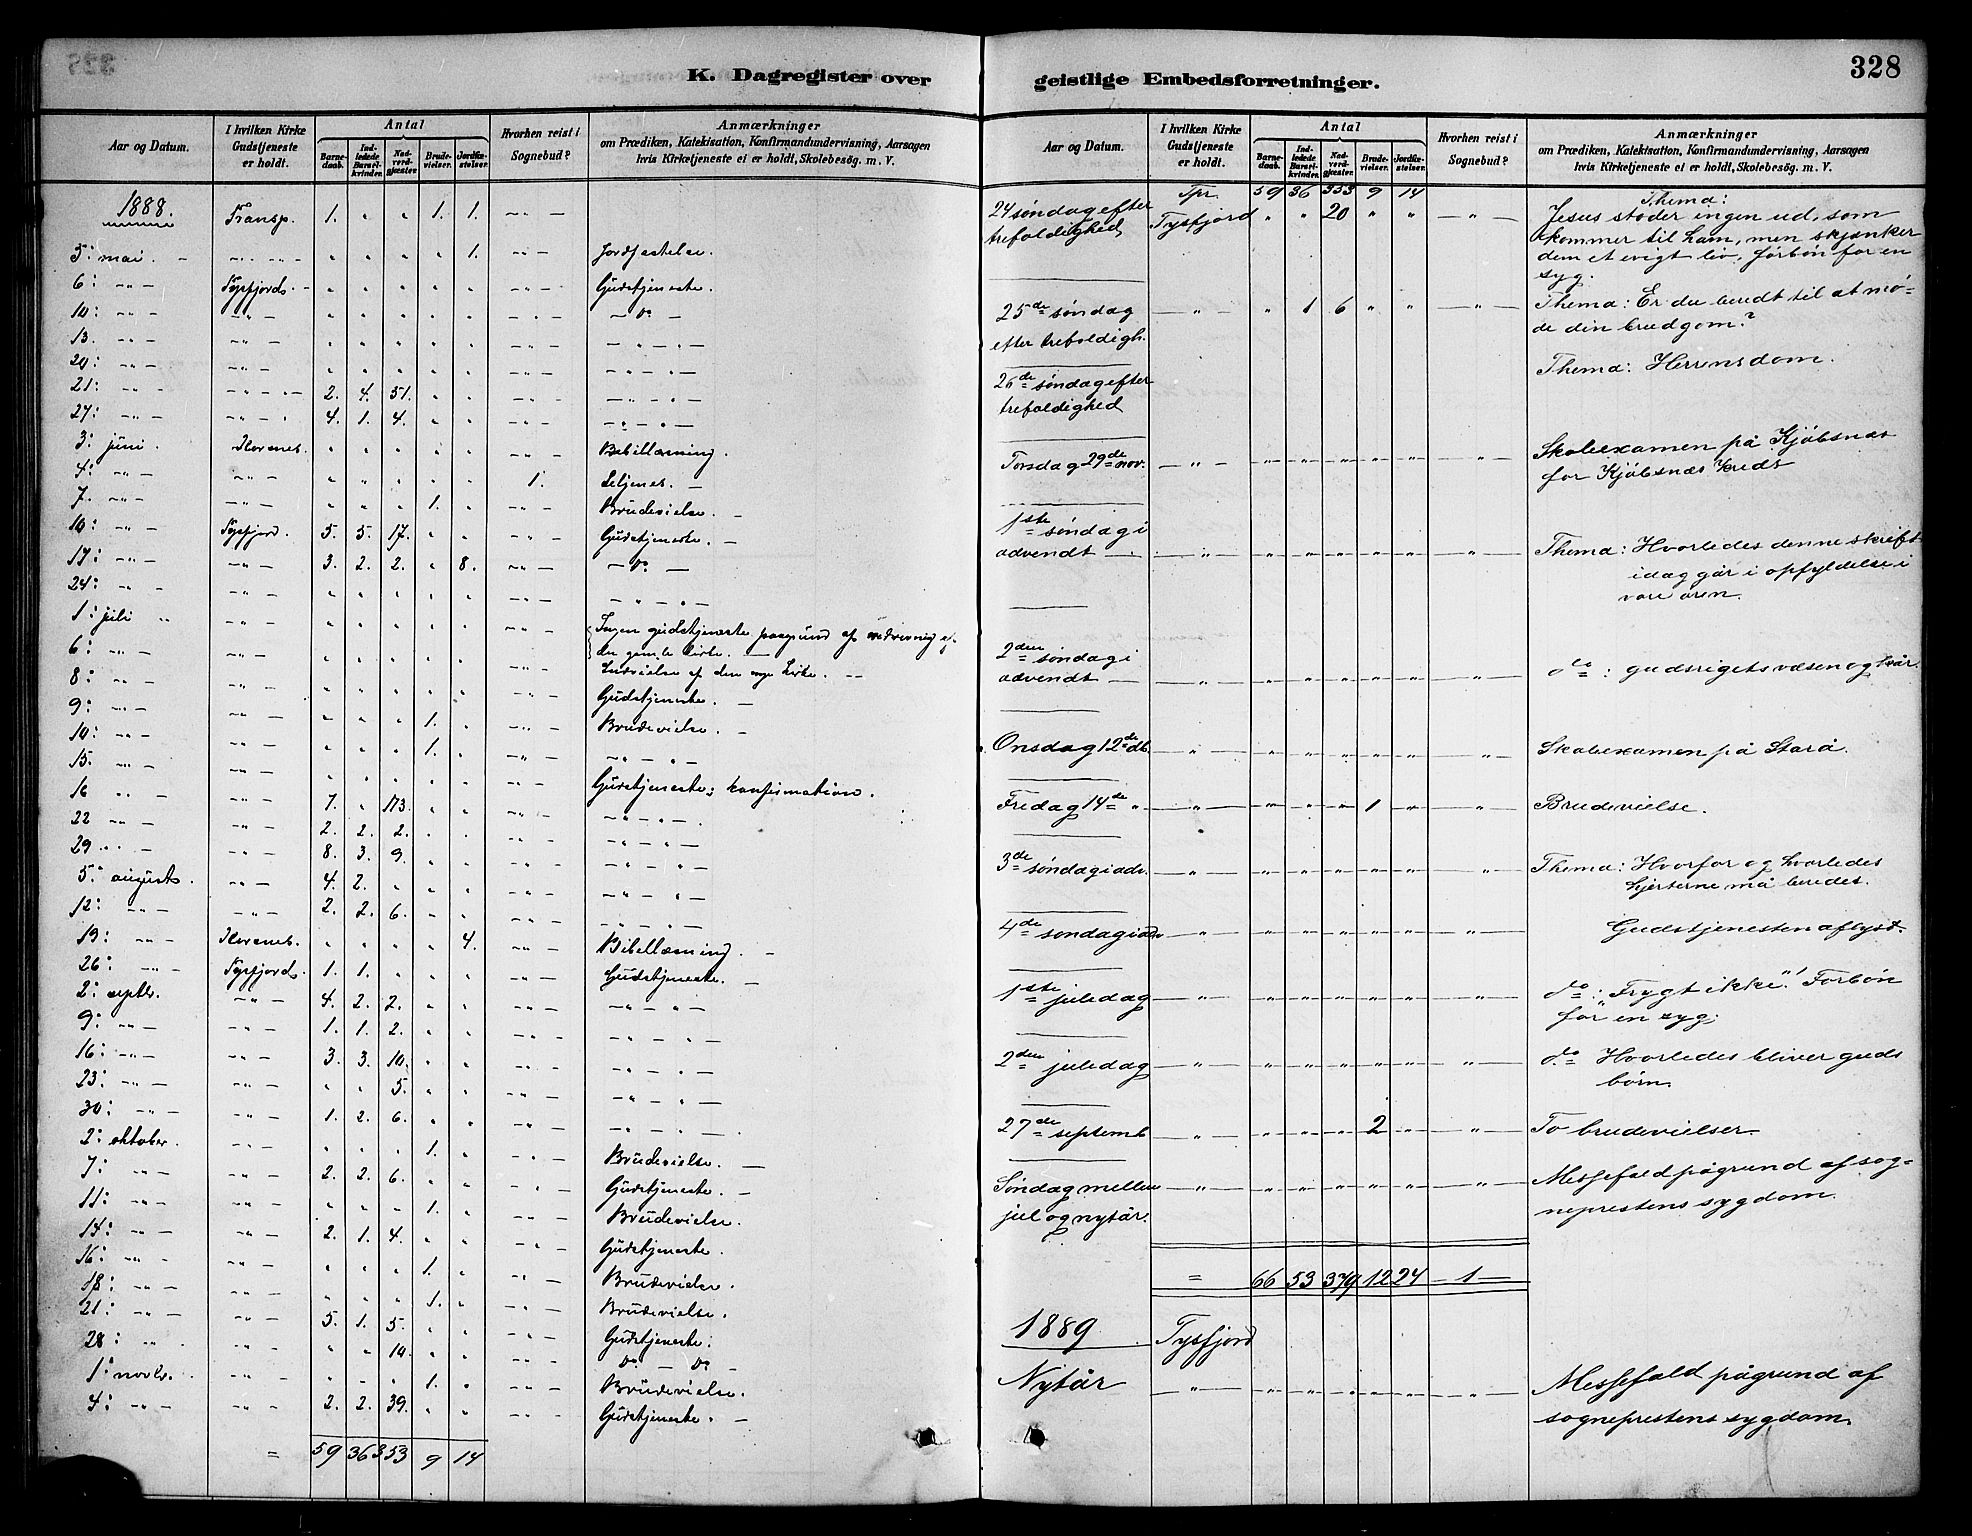 328
K. Dagregister over
geistlige Embedsforretninger.
Aar og Datum. I hvilken Kirke Gudstjeneste er holdt. Antal Barnedaab. Indledede Barselkvinder. Nadverdgjæster. Brudevielser. Jordfæstelser. Hvorhen reist i Sognebud? Anmærkninger om Prædiken, Katekisation, Konfirmandundervisning, Aarsagen hvis Kirketjeneste ei er holdt, Skolebesøg. m. V.
1888. Transp. 1. " " 1. 1. -"-
5: mai - -"- " " " " 1. -"- Jordfestelse.
6: -"- Tysfjords. - " " " " " -"- Gudstjeneste.
10: -"- -"- " " " " " -"- - do -
13. -"- -"- " " " " " -"- -"-"-
20: -"- -"- " " " " " -"- -"-"-
21: -"- -"- 2. 4. 51. " " -"- -"-"-
27: -"- -"- 4. 1. 4. " " -"- -"-"-
3: juni. " " " " " -"- Bibellæsning.
4: -"- -"- " " " " " 1.
7. -"- -"- " " " 1. " -"- Brudevielse. -
10: -"- Tysfjord. 5. 5. 17. " " -"- Gudstjeneste. -
17: -"- -"- 3. 2. 2. " 8. -"- - do -
24: -"- -"- " " " " " -"- -"-"-
1: juli " -"- " " " " " -"- Ingen gudstjeneste paagrund af nedrivning af
6: -"- -"- " " " " " den gamle kirke. -
8: -"- -"- " " " " " -"- Indvielse af den nye kirke. -
9: -"- -"- " " " 1. " -"- Gudstjeneste. -
10: -"- -"- " " " 1. " -"- Brudevielse. -
15. -"- -"- " " " " " -"- -"-"-
16 -"- -"- 7. " 173. " " -"- Gudstjeneste; konfirmation.
22 -"- -"- 2. 2. 2. " " -"- -"-"-
29 -"- -"- 8. 3. 9. " " -"- -"-"-
5: augusts. -"- 4. 2. " " " -"- -"-"-
12: -"- -"- 2. 2. 6. " " -"- -"-"-
19: -"- " " " " 4. -"- Bibellæsning. -
26: -"- Tysfjords. 1. 1. " " " -"- Gudstjeneste. -
2: septbr. -"- 4. 2. 2. " " -"- -"-"-
9: -"- -"- 1. 1. 2. " " -"- -"-"-
16: -"- -"- 3. 3. 10. " " -"- -"-"-
23: -"- -"- " " 5. " " -"- -"-"-
30: -"- -"- 1. 2. 6. " " -"- -"-"-
2: oktober. -"- " " " 1. " -"- Brudevielse. -
7: -"- -"- 2. 2. 6. " " -"- Gudstjeneste. -
11: -"- -"- " " " 1. " Brudevielse.
14: -"- -"- 2. 1. 4. " " -"- Gudstjeneste.
16: -"- -"- " " " 1. " -"- Brudevielse.
18: -"- -"- " " " 1. " -"- Brudevielse.
21: -"- -"- 5. 1. 5. " " -"- Gudstjeneste.
28: -"- -"- " " 10. " " -"- do - do -
1: novbr. -"- " " " 1. " -"- Brudevielse.
4: -"- -"- 2. 2. 39. " " -"- Gudstjeneste. -
= 59 36 353 9 14
Aar og Datum. I hvilken Kirke Gudstjeneste er holdt. Antal Barnedaab. Indledede Barselkvinder. Nadverdgjæster. Brudevielser. Jordfæstelser. Hvorhen reist i Sognebud? Anmærkninger om Prædiken, Katekisation, Konfirmandundervisning, Aarsagen hvis Kirketjeneste ei er holdt, Skolebesøg. m. V.
Tpr. 59 36 353 9 14
Thema:
24 søndag efter Tysfjord " " 20 " " -"- Jesus støder ingen ud, som
trefoldighed kommer til ham, men skjænker
dem et evigt liv, forbøn for en
syg.
25de søndag -"- " 1 6 " " -"- Thema: Er du beredt til at mø-
efter trefoldigh. de din brudgom?
26de søndag efter Thema: Herrens dom.
trefoldighed
Torsdag 29de nov. -"- " " " " " -"- Skoleexamen på Kjøbsnæs
for Kjøbsnæs kreds
1ste søndag i
advendt -"- " " " " " " Thema: Hvorledes denne skrift
idag går i opfyldelse i
vore øren.
2den søndag i
advendt -"- " " " " " " do: gudsrigets væsen og kår.
Onsdag 12de db. " " " " " " " Skoleexamen på Storå.
Fredag 14de " -"- " " " 1 " " Brudevielse.
3de søndag i adv. -"- " " " " " " Thema: Hvorfor og hvorledes
hjerterne må beredes.
4de søndag i adv -"- " " " " " " Gudstjenesten aflyst.
1ste juledag -"- " " " " " " do: "Frygt ikke"! Forbøn
for en syg;
2den juledag -"- " " " " " " do Hvorledes bliver guds
børn.
27de septemb. -"- " " " 2 " " To brudevielser.
Søndag mellem -"- " " " " " " Messefald pågrund af sog-
jul og nytår. neprestens sygdom.
= 66 53 379 12 24 -1-
1889 Tysfjord
Nytår -"- " " " " " -"- Messefald pågrund af
sogneprestens sygdom.